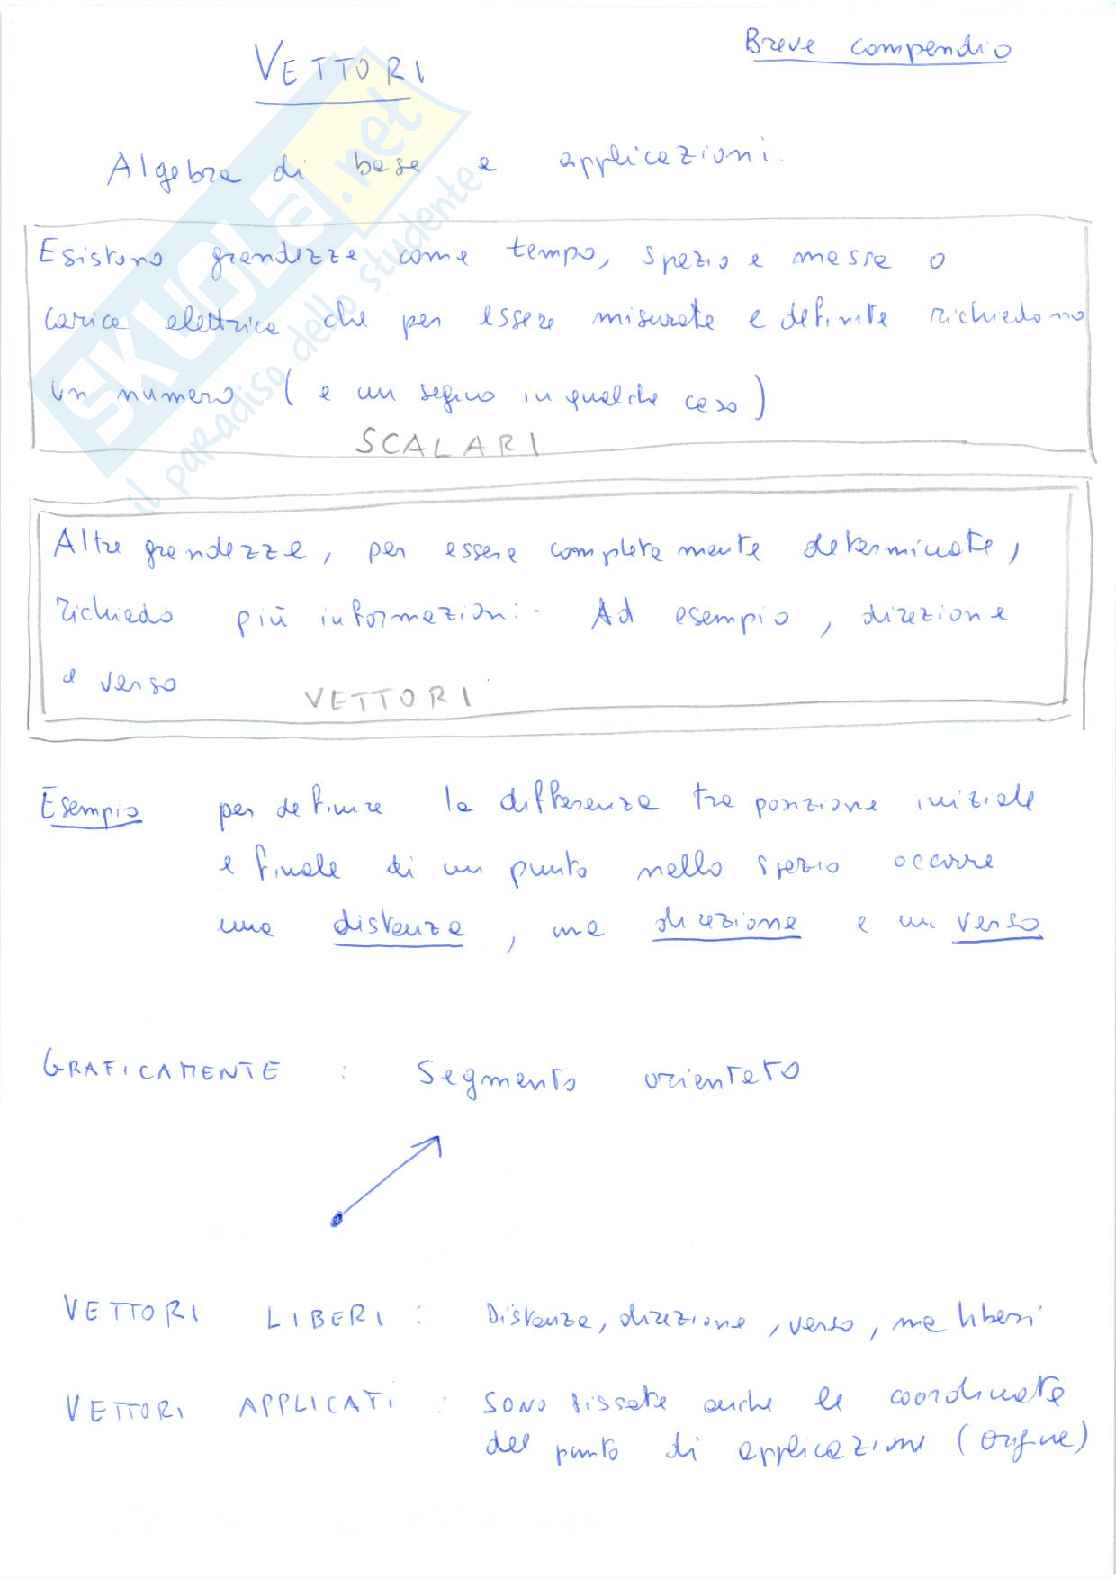 Breve compendio
VETTORI
Algebra di base e applicazioni.
Esistono grandezze come tempo, spazio e massa o
carica elettrica che per essere misurate e definite richiedono
un numero (e un segno in qualche caso)
SCALARI
Altre grandezze, per essere completamente determinate,
richiedo più informazioni. Ad esempio, direzione
e verso
VETTORI
Esempio per definire la differenza tra posizione iniziale
e finale di un punto nello spazio occorre
una distanza, una direzione e un verso
GRAFICAMENTE : Segmento orientato
VETTORI LIBERI : Distanza, direzione, verso, ma liberi
VETTORI APPLICATI : SONO fissate anche le coordinate
del punto di applicazione (origine)
SKUOLA.net
il paradiso dello studente